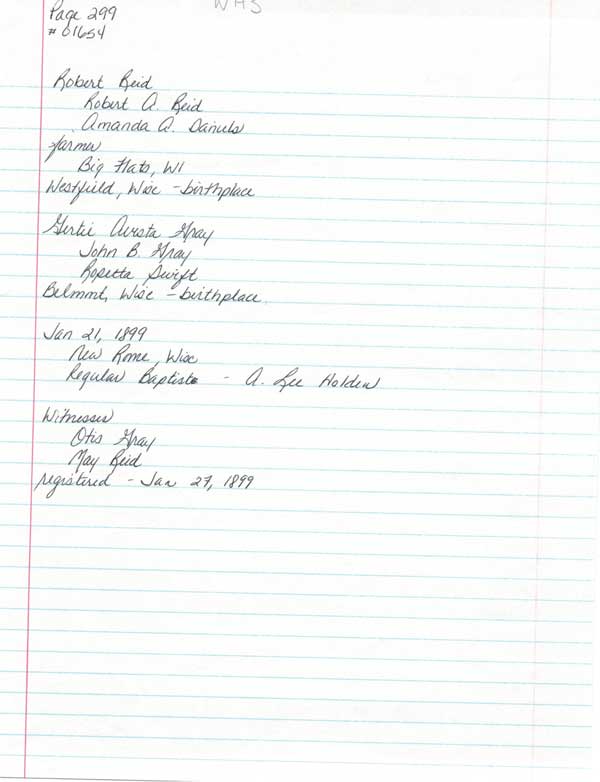 WHS
Page 299
# 01654
Robert Reid
Robert A. Reid
Amanda A. Daniels
farmer
Big Flats, WI
Westfield, Wisc - birthplace
Gertie Avista Gray
John B. Gray
Rosetta Swift
Belmont, Wisc - birthplace.
Jan 21, 1899
New Rome, Wisc
Regular Baptist - A. Lee Holden
Witnesses
Otis Gray
May Reid
registered - Jan 27, 1899